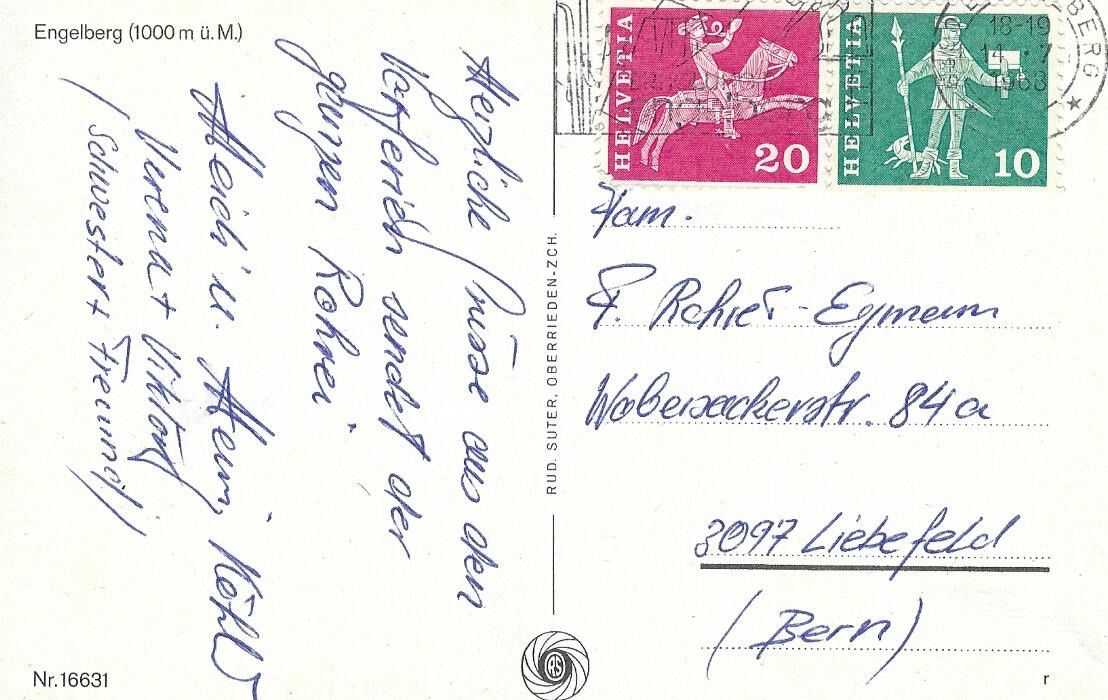 Engelberg (1000 m ü. M.)
Herzliche Grüsse aus den
sendet der
ganzen Rohrer
Heidi u. Heini
Verena + Viktor
(Schwester + Freund)
HELVETIA
20
HELVETIA
10
BERG
18-19
14. 7
1968
RUD. SUTER, OBERRIEDEN-ZCH.
RS
Fam.
F. Rohrer-Egmann
Wabersackerstr. 84a
3097 Liebefeld
(Bern)
Nr. 16631
r